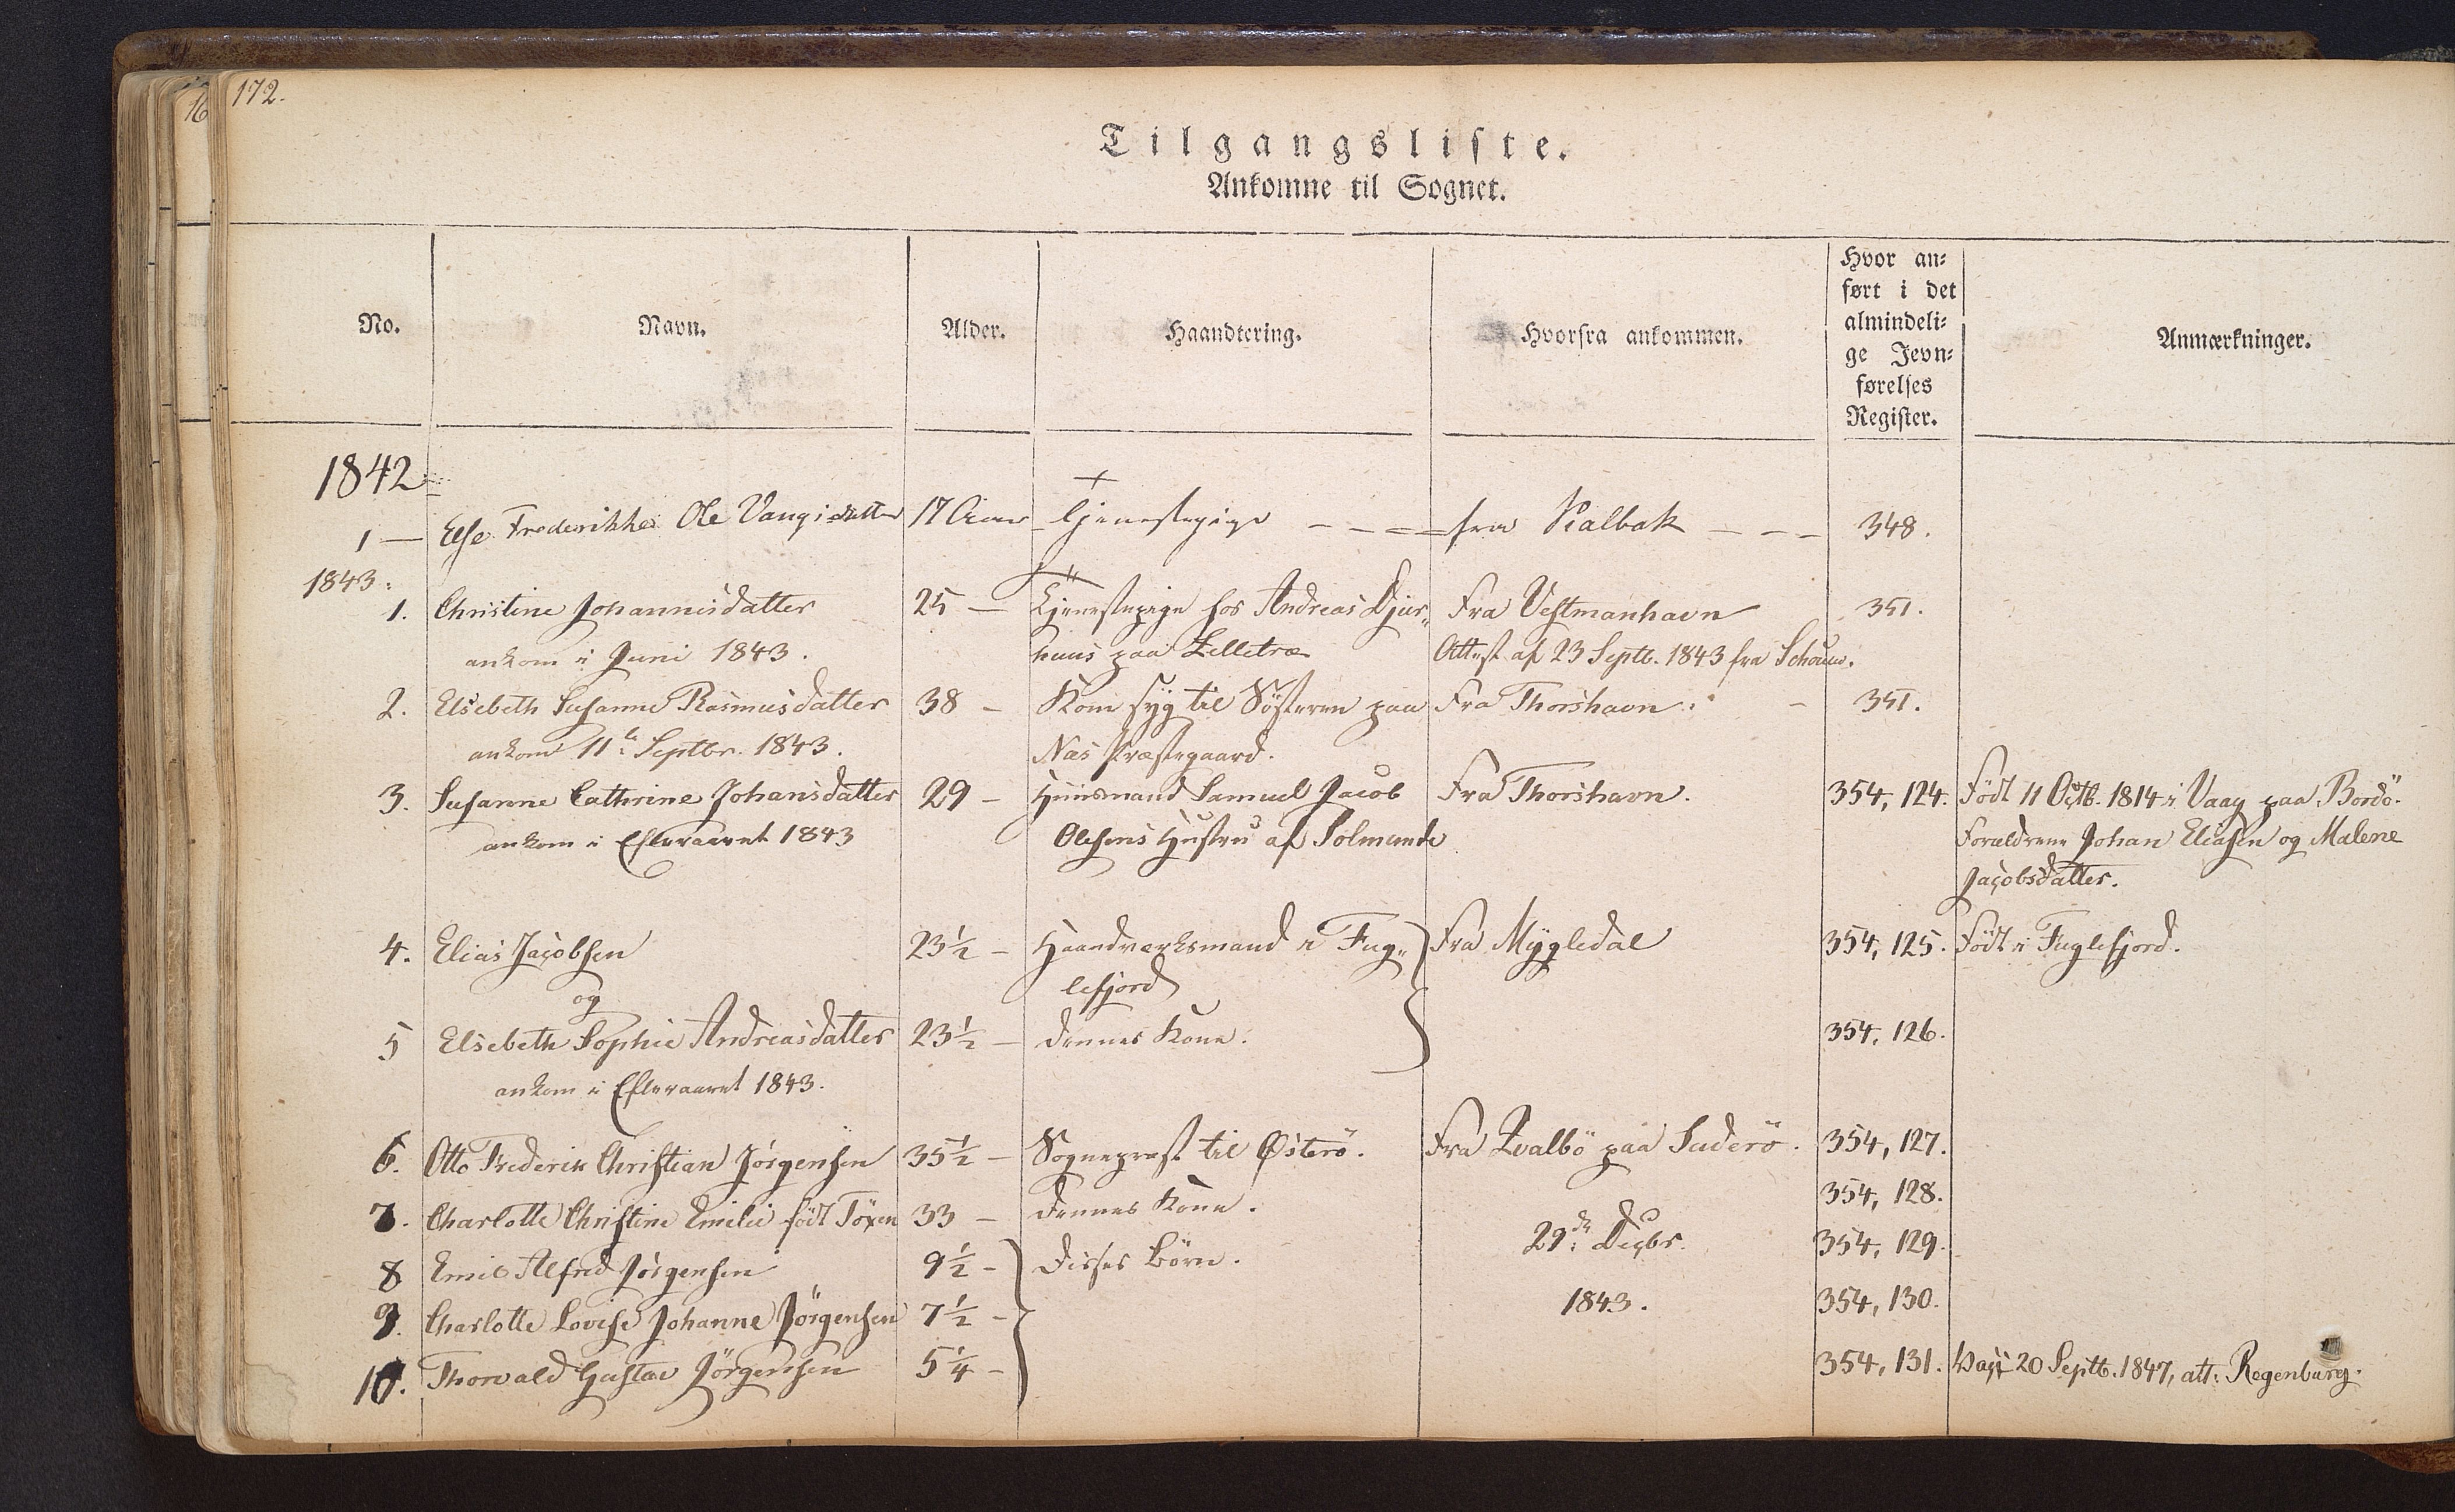 172.
16
Tilgangsliste.
Ankomne til Sognet.
No.
Navn.
Alder.
Haandtering.
Hvorfra ankommen.
Hvor an-
ført i det
almindeli-
ge Jevn-
førelses
Register.
Anmærkninger.
1842
1 — Else Frederikke Ole Vangsdatter 17 Aar Tjenestepige — — — fra Kalbak — — — 348.
1843.
1. Christine Johannisdatter 25 — Tjenestepige hos Andreas Djur- Fra Vestmanhavn 351.
ankom i Juni 1843. huus paa Lilletræ Attest af 23 Septb. 1843 fra Schouw.
2. Elsebeth Susanne Rasmusdatter 38 — Kom syg til Søsteren paa Fra Thorshavn. — 351.
ankom 11te Septbr. 1843. Næs Præstegaard.
3. Susanne Cathrine Johansdatter 29 — Huusmand Samuel Jacob Fra Thorshavn. 354, 124. Født 11 Octb. 1814 i Vaag paa Bordö.
ankom i Efteraaret 1843 Olesens Hustru af Solmunde Forældrene Johan Eliasen og Malene
Jacobsdatter.
4. Elias Jacobsen 23½ — Haandværksmand i Fug- Fra Mygledal 354, 125. Födt i Fuglefjord.
og lefjord
5 Elsebeth Sophie Andreasdatter 23½ — dennes Kone. 354, 126.
ankom i Efteraaret 1843.
6. Otto Frederik Christian Jörgensen 35½ — Sognepræst til Østerö. Fra Qvalbö paa Suderö. 354, 127.
7. Charlotte Christine Emilie född Töxen 33 — dennes Kone. 354, 128.
8 Emil Alfred Jörgensen 9½ — disses Börn. 29de Decbr. 354, 129.
9. Charlotte Lovise Johanne Jörgensen 7½ — 1843. 354, 130.
10. Thorvald Gustav Jörgensen 5¼ — 354, 131. Vacc. 20 Septb. 1847, att. Regenburg.